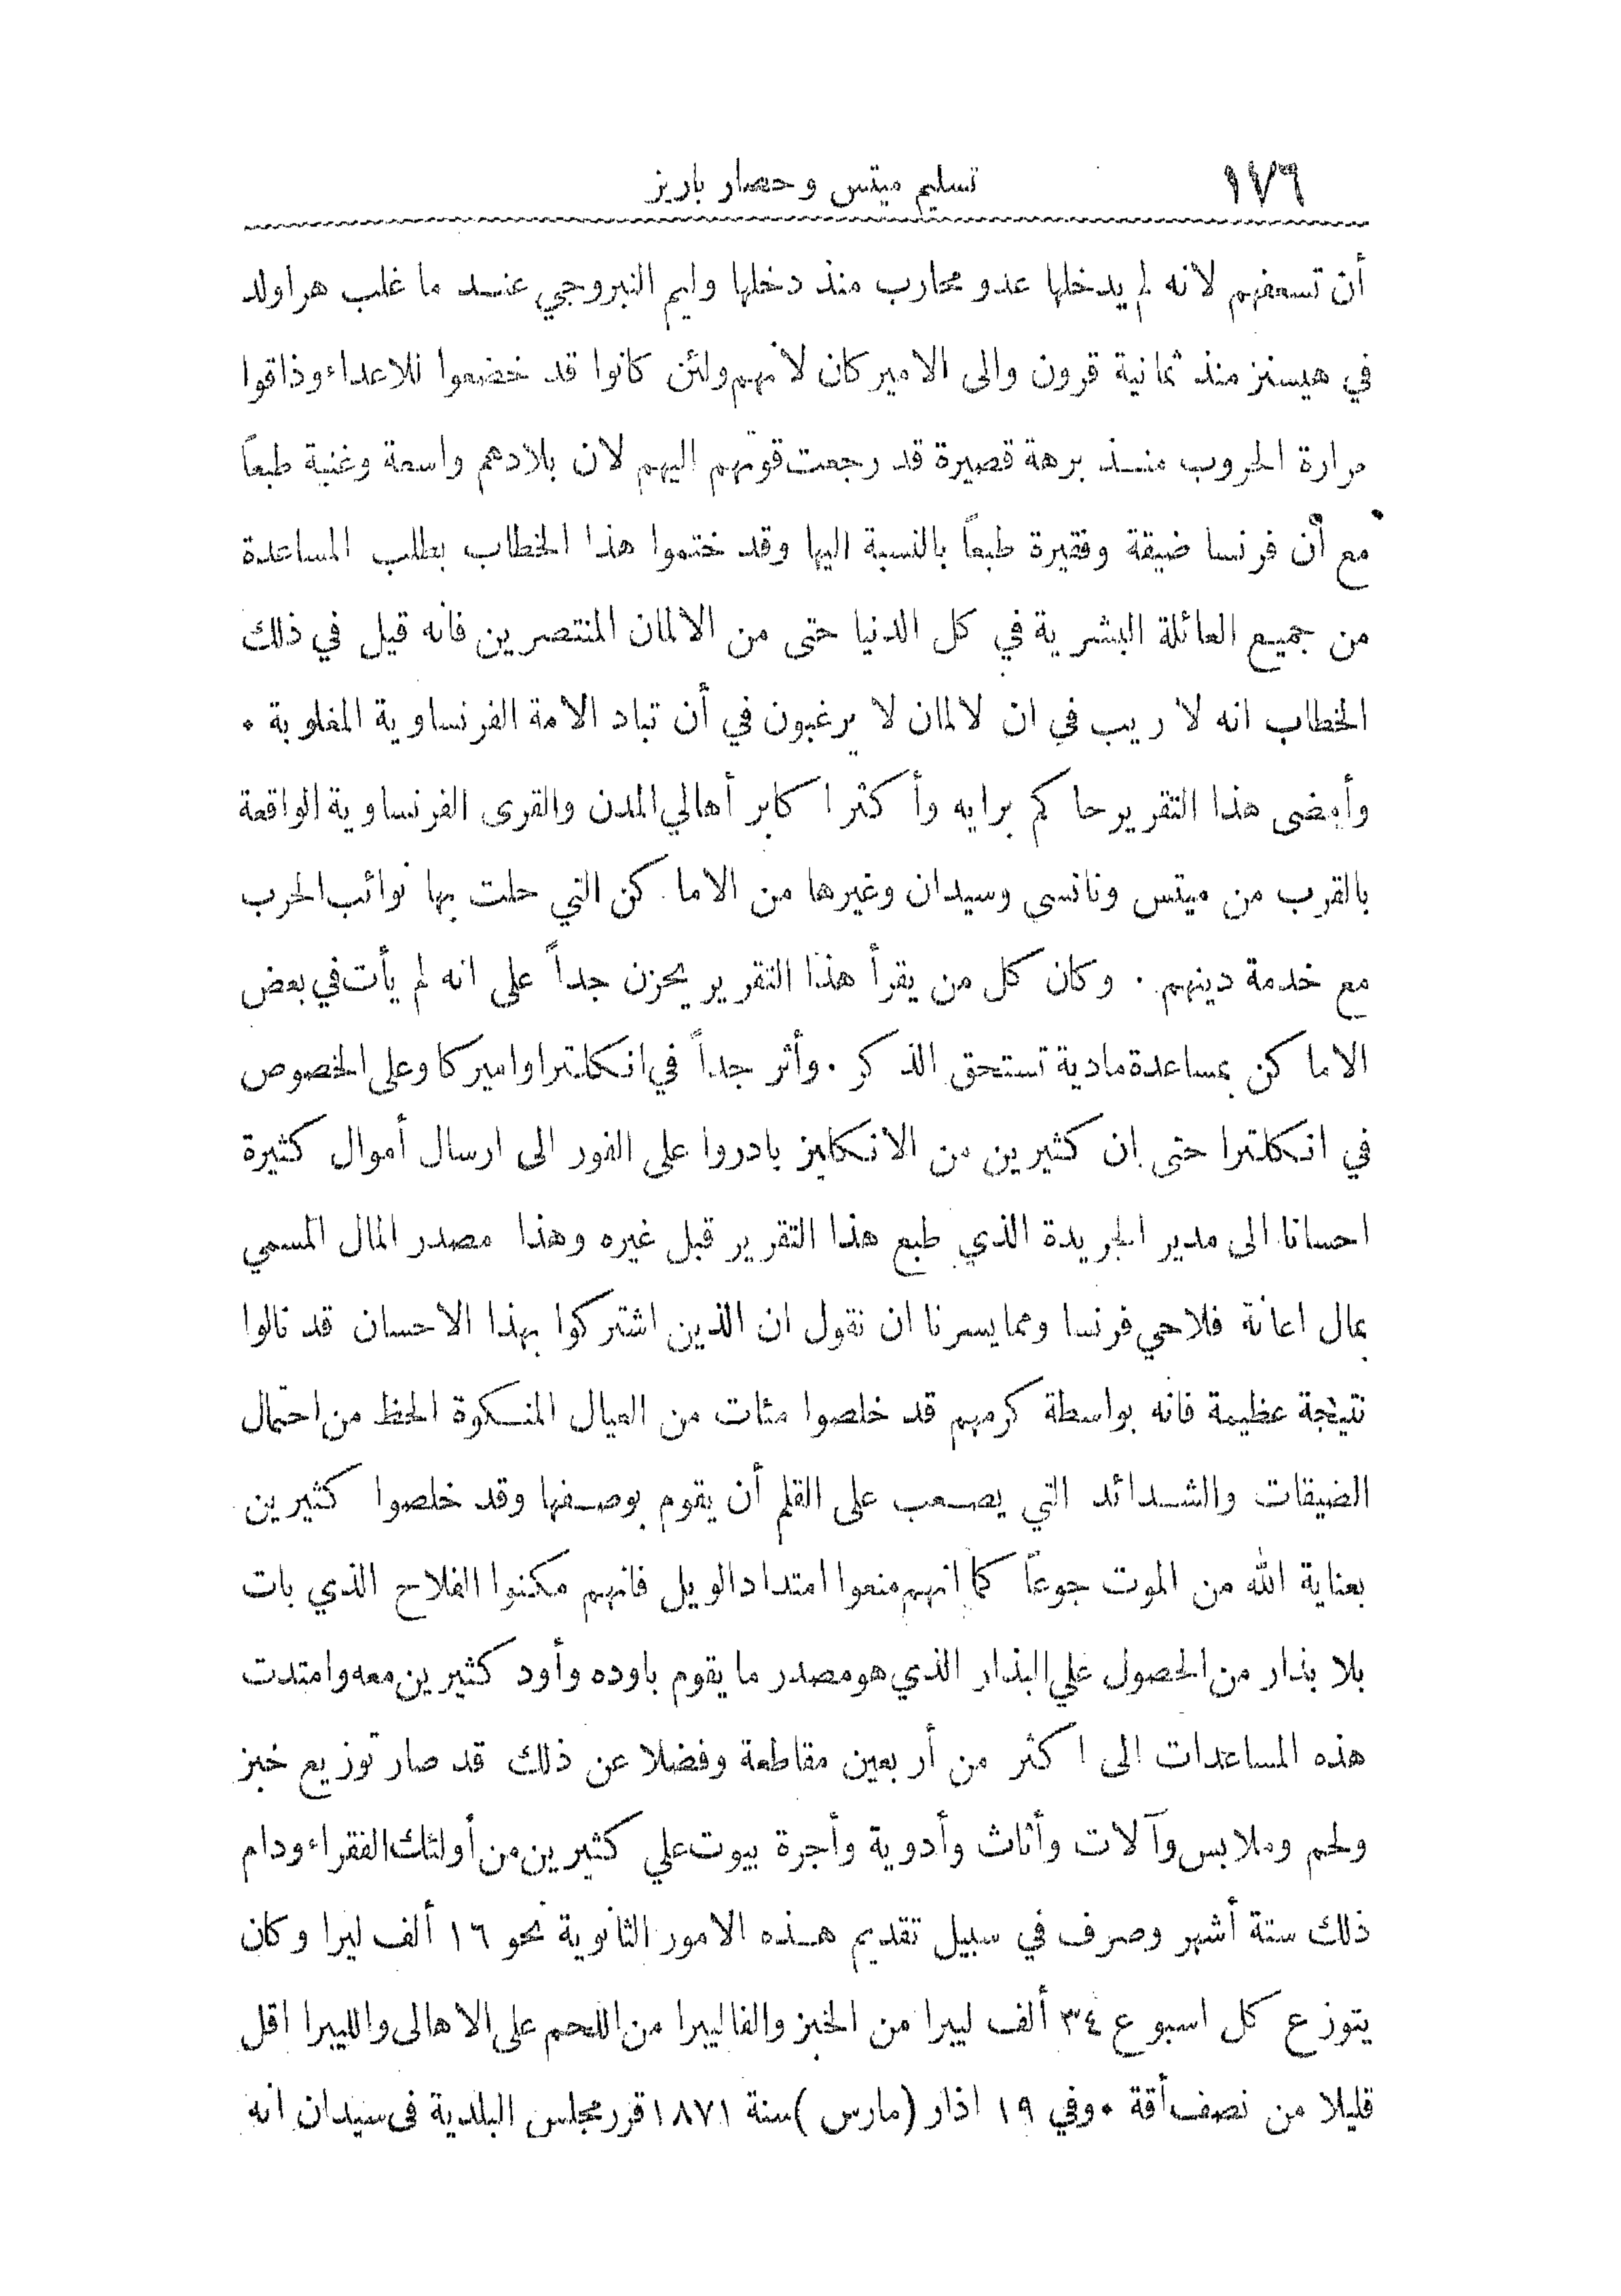 ١٧٦ تسليم ميتس وحصار باريز
أن تسعفهم لانه لم يدخلها عدو محارب منذ دخلها وليم النبروجي عند ما غلب هراولد
في هيستنز منذ ثمانية قرون والى الاميركان لانهم ولئن كانوا قد خضعوا للاعداء وذاقوا
مرارة الحروب منذ برهة قصيرة قد رجعت قوتهم اليهم لان بلادهم واسعة وغنية طبعاً
مع أن فرنسا ضيقة وفقيرة طبعاً بالنسبة اليها وقد ختموا هذا الخطاب بطلب المساعدة
من جميع العائلة البشرية في كل الدنيا حتى من الالمان المنتصرين فانه قيل في ذلك
الخطاب انه لا ريب في ان لالمان لا يرغبون في أن تباد الامة الفرنساوية المغلوبة .
وأمضى هذا التقرير حاكم برايه وأكثر اكابر أهالي المدن والقرى الفرنساوية الواقعة
بالقرب من ميتس ونانسى وسيدان وغيرها من الاماكن التي حلت بها نوائب الحرب
مع خدمة دينهم . وكان كل من يقرأ هذا التقرير يحزن جداً على انه لم يأت في بعض
الاماكن بمساعدة مادية تستحق الذكر . وأثر جداً في انكلترا واميركا وعلى الخصوص
في انكلترا حتى ان كثيرين من الانكليز بادروا على الفور الى ارسال أموال كثيرة
احسانا الى مدير الجريدة الذي طبع هذا التقرير قبل غيره وهذا مصدر المال المسمي
بمال اعانة فلاحي فرنسا ومما يسرنا ان نقول ان الذين اشتركوا بهذا الاحسان قد نالوا
نتيجة عظيمة فانه بواسطة كرمهم قد خلصوا مئات من العيال المنكوة الحظ من احتمال
الضيقات والشدائد التي يصعب على القلم أن يقوم بوصفها وقد خلصوا كثيرين
بعناية الله من الموت جوعاً كما انهم منعوا امتداد الويل فانهم مكنوا الفلاح الذي بات
بلا بذار من الحصول علي البذار الذي هو مصدر ما يقوم باوده وأود كثيرين معه وامتدت
هذه المساعدات الى اكثر من أربعين مقاطعة وفضلا عن ذلك قد صار توزيع خبز
ولحم وملابس وآلات وأثاث وأدوية وأجرة بيوت علي كثيرين من أولئك الفقراء ودام
ذلك ستة أشهر وصرف في سبيل تقديم هذه الامور الثانوية نحو ١٦ ألف ليرا وكان
يتوزع كل اسبوع ٣٤ ألف ليبرا من الخبز والفا ليبرا من اللحم على الاهالى والليبرا اقل
قليلا من نصف أقة . وفي ١٩ اذار (مارس) سنة ١٨٧١ قرر مجلس البلدية فى سيدان انه